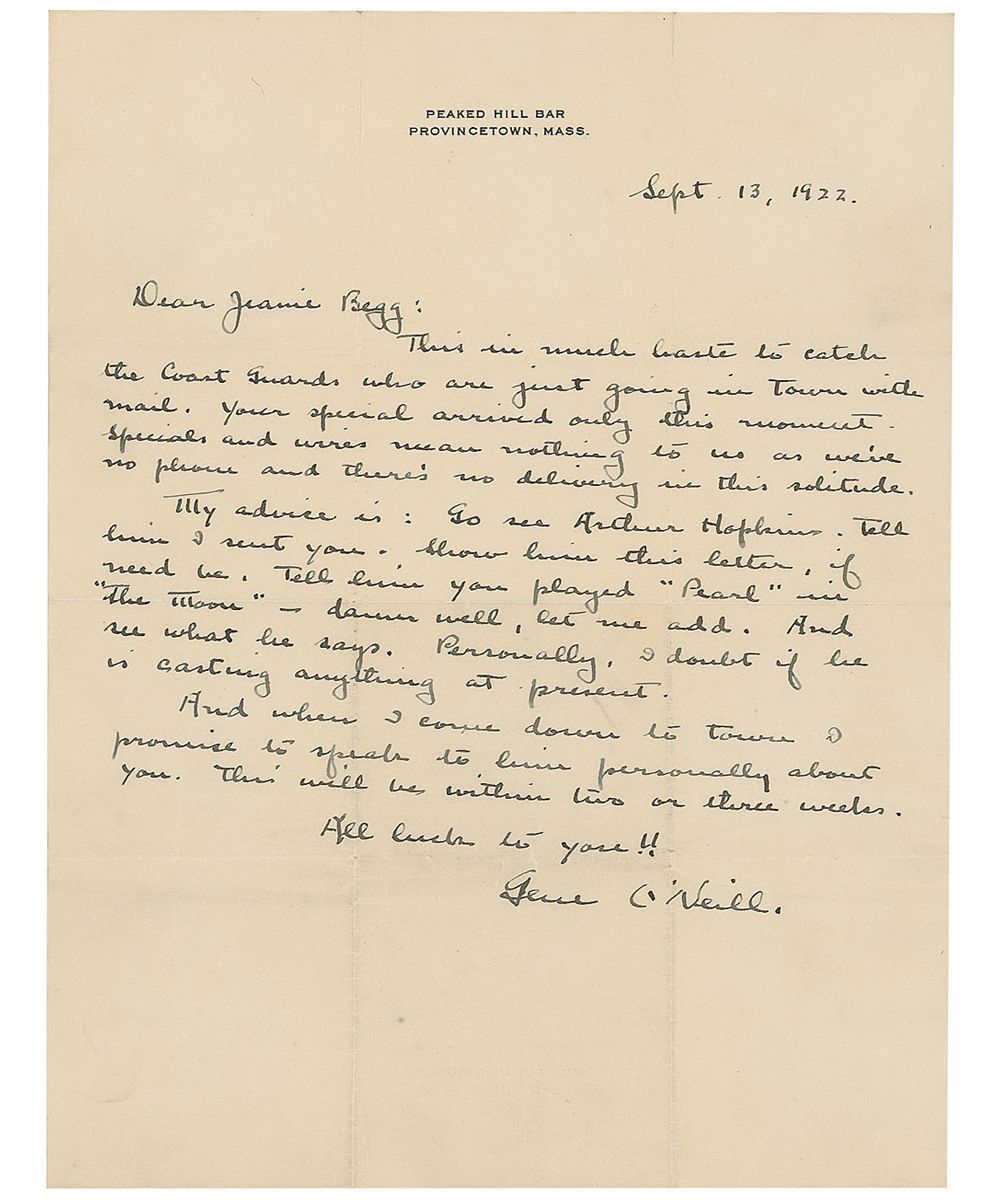 PEAKED HILL BAR
PROVINCETOWN, MASS.
Sept. 13, 1922.
Dear Jeanie Begg:
This in much haste to catch
the Coast Guards who are just going in town with
mail. Your special arrived only this moment.
Specials and wires mean nothing to us as we've
no phone and there's no delivery in this solitude.
My advice is: Go see Arthur Hopkins. Tell
him I sent you. Show him this letter, if
need be. Tell him you played "Pearl" in
"The Moon" — damn well, let me add. And
see what he says. Personally, I doubt if he
is casting anything at present.
And when I come down to town I
promise to speak to him personally about
you. This will be within two or three weeks.
All luck to you!!
Gene O'Neill.